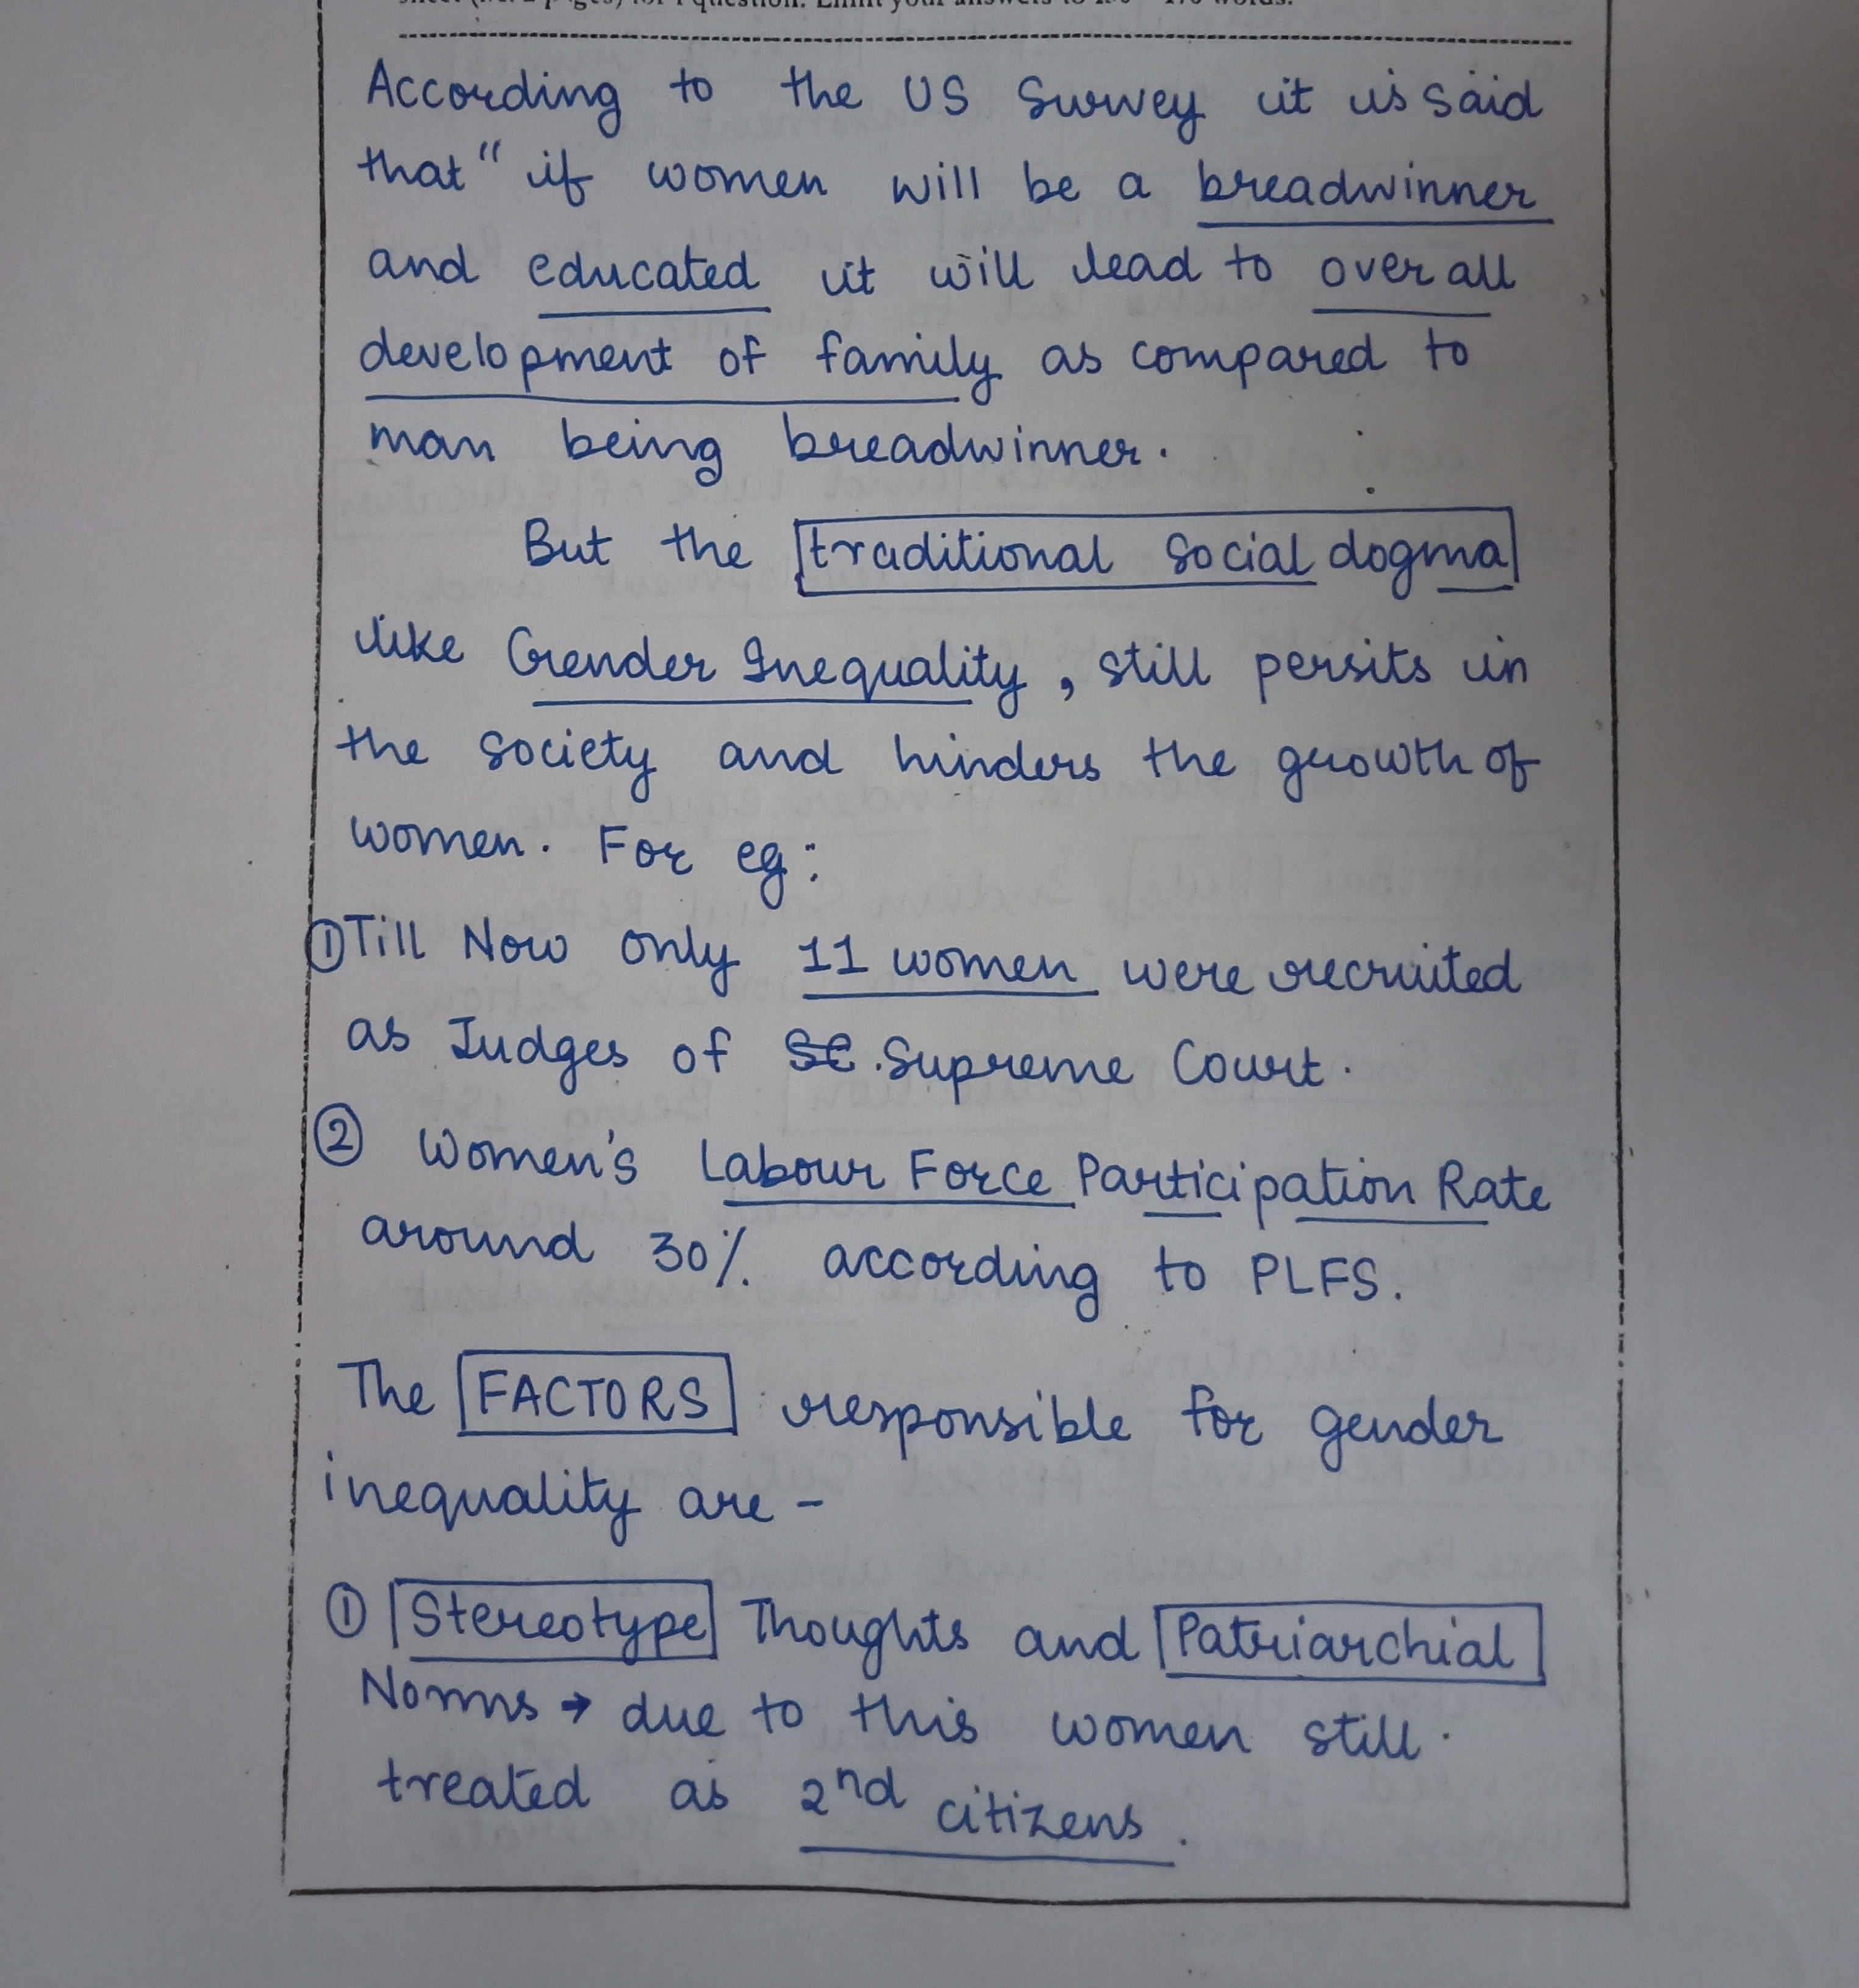 According to the US Survey it is said
that " if women will be a breadwinner
and educated it will lead to overall
development of family as compared to
man being breadwinner.
But the traditional social dogma
like Gender Inequality, still persits in
the society and hinders the growth of
women. For eg:
① Till Now only 11 women were recruited
as Judges of SC Supreme Court.
② Women's Labour Force Participation Rate
around 30% according to PLFS.
The FACTORS responsible for gender
inequality are -
① Stereotype Thoughts and Patriarchial
Norms → due to this women still
treated as 2nd citizens.